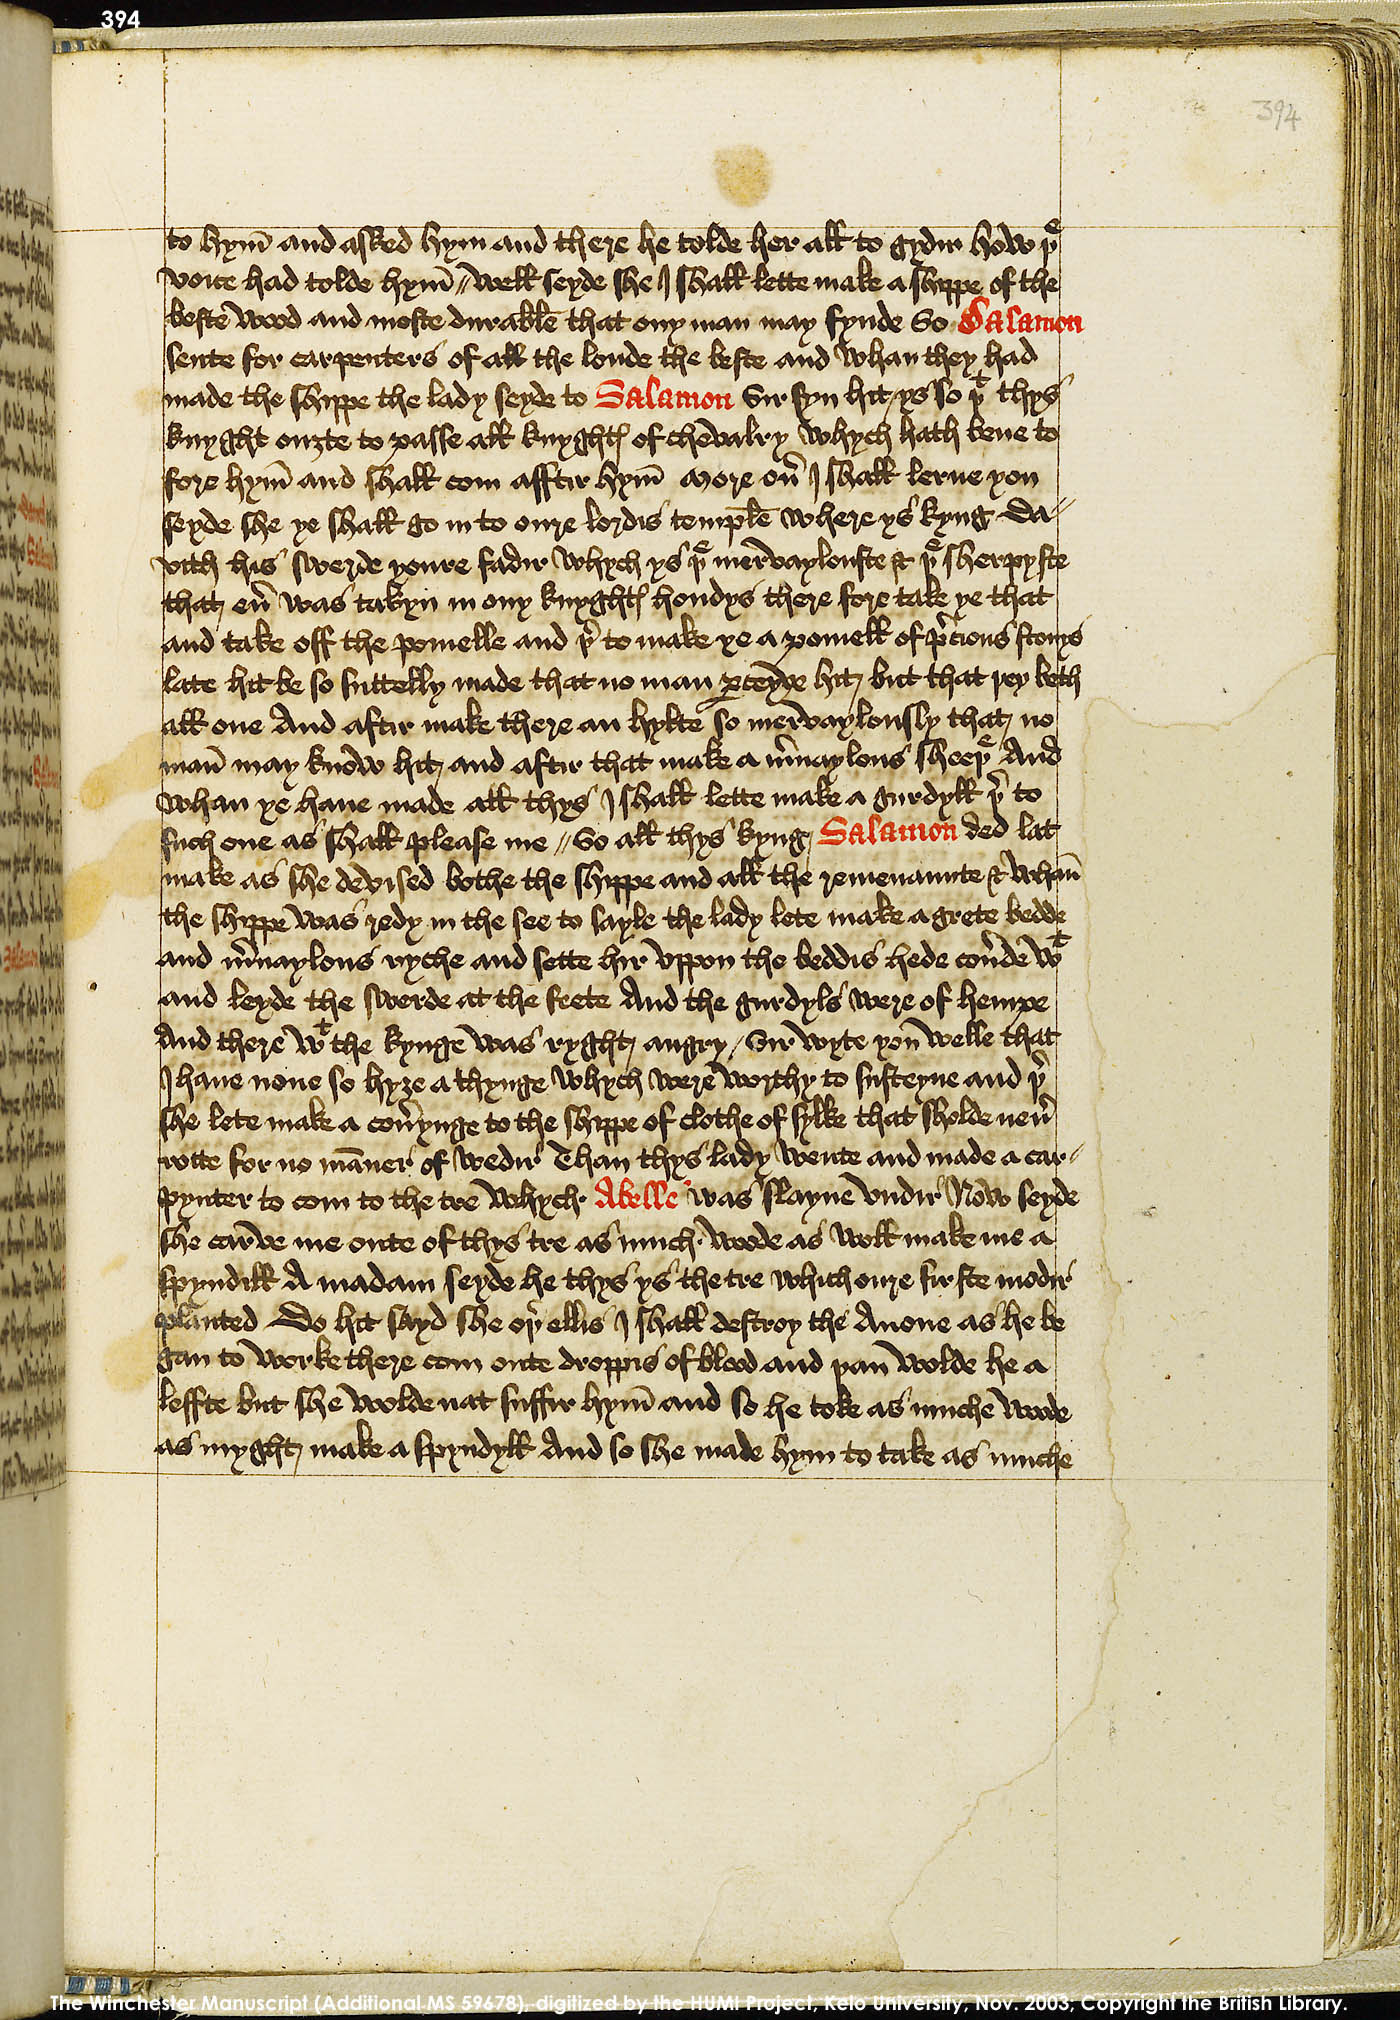 394
394
to hym̄ and asked hym and there he tolde her all to gydir how þͤ
voice had tolde hym̄ // Well seyde she I shall lette make a shippe of the
beste wood and moste durable that ony man may fynde So Salamon
sente for carpenters of all the londe the beste and whan they had
made the shippe the lady seyde to Salamon Sir syn hit ys so þᵗ thys
knyght ouȝte to passe all knyghtꝭ of chevalry whych hath bene to
fore hym̄ and shall com afftir hym̄ More ou̕ I shall lerne you
seyde she ye shall go in to oure lordis temple where ys kyng Da//
vith his swerde youre fadir whych ys þͤ mervaylouste & þͤ sherpyste
that eu̕ was takyn in ony knyghtꝭ hondys there fore take ye that
and take off the pomelle and þ̕ to make ye a pomell of p̕cious stonys
late hit be so suttelly made that no man ꝑceyve hit but that þey beth
all one And aftir make there an hylte so mervaylously that no
man̄ may know hit and aftir that make a m̕vaylous sheeþͤ And
whan ye haue made all thys I shall lette make a gurdyll þ̕ to
such one as shall please me // So all thys kyng Salamon ded lat
make as she devised bothe the shippe and all the remenaunte & whan̄
the shippe was redy in the see to sayle the lady lete make a grete bedde
and m̕vaylous ryche and sette hir vppon the beddis hede cou̕de wᵗ
and leyde the swerde at the feete And the gurdyls were of hempe
And there wᵗ the kynge was ryght angry / Sir wyte you welle that
I haue none so hyȝe a thynge whych were worthy to susteyne and þ̕
she lete make a cou̕ynge to the shippe of clothe of sylke that sholde neu̕
rotte for no man̄er of wedir Than thys lady wente and made a car//
pynter to com to the tre whych Abelle was slayne vndir Now seyde
she carve me oute of thys tre as much woode as woll make me a
spyndill A madam seyde he thys ys the tre which oure firste modir
planted Do hit sayd she oþ̕ ellis I shall destroy the Anone as he be
gan to worke there com oute droppis of blood and þan wolde he a
leffte but she wolde nat suffir hym̄ and so he toke as muche woode
as myght make a spyndyll And so she made hym to take as muche
The Winchester Manuscript (Additional MS 59678), digitized by the HUMI Project, Keio University, Nov. 2003, Copyright the British Library.